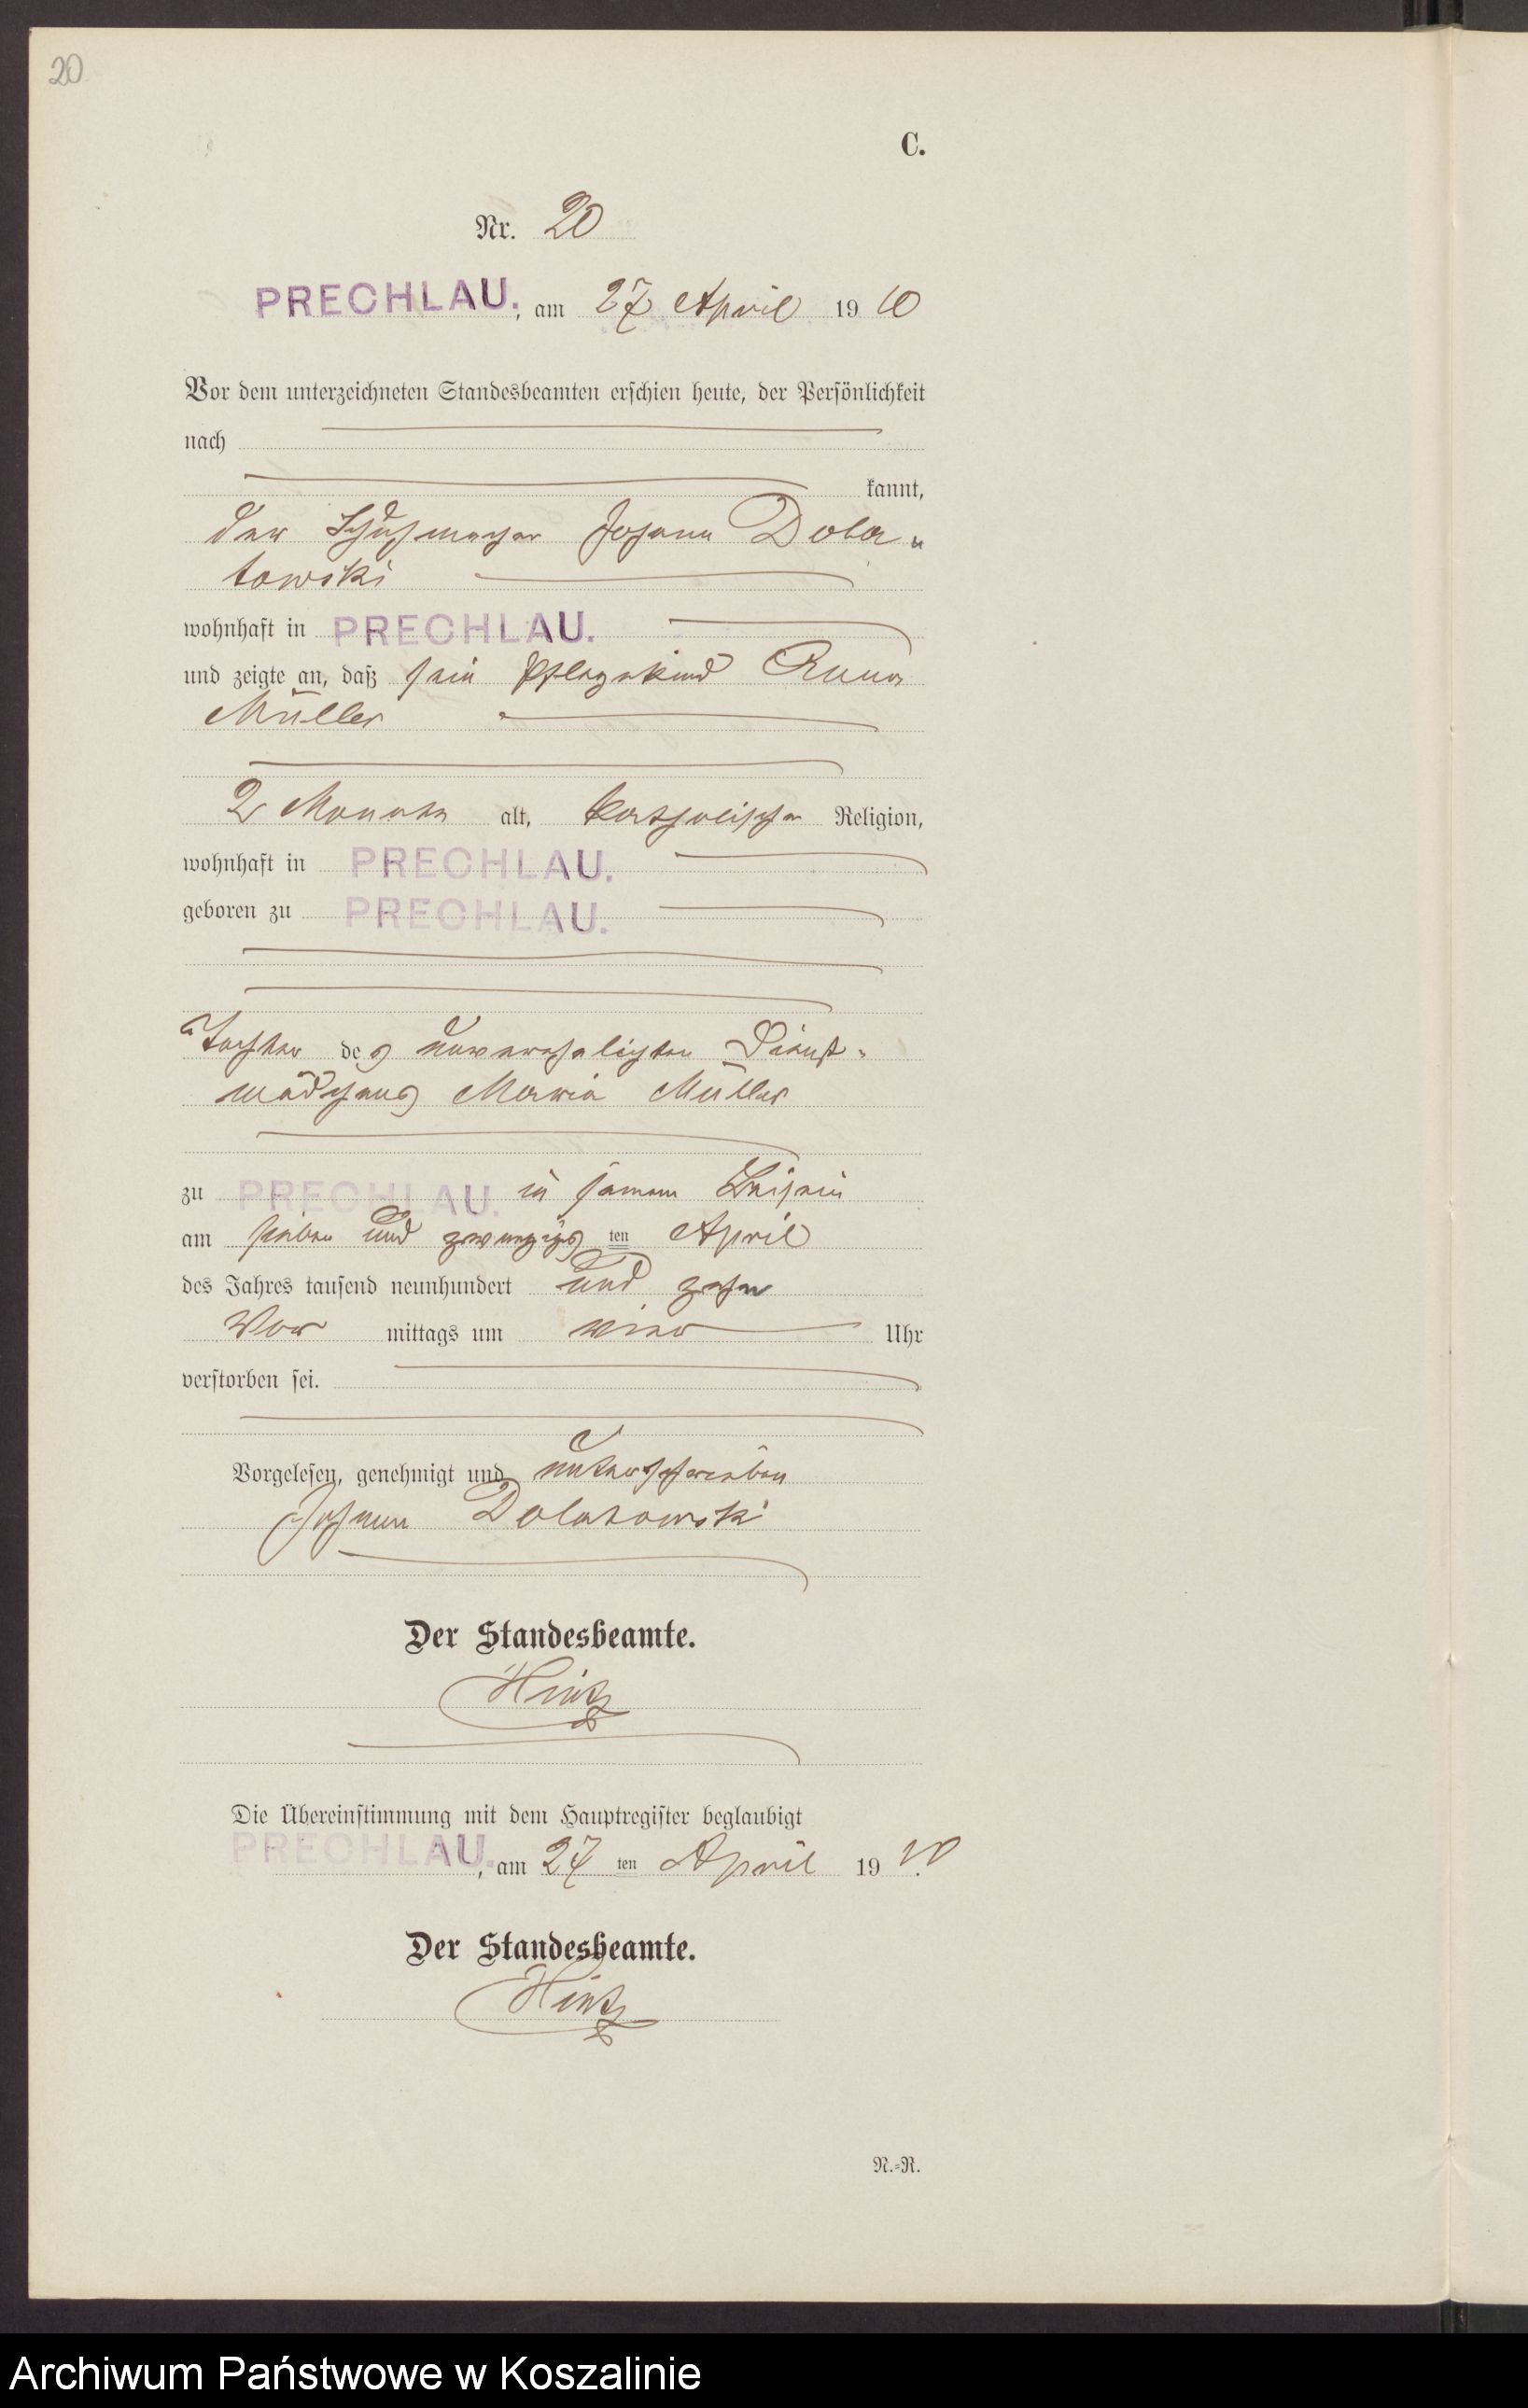 20
C.
Nr. 20
PRECHLAU. , am 27 April 1910
Vor dem unterzeichneten Standesbeamten erschien heute, der Persönlichkeit
nach
kannt,
der Schuhmacher Johann Dola-
towski
wohnhaft in PRECHLAU.
und zeigte an, daß sein Pflegekind Anna
Müller
2 Monate alt, katholischer Religion,
wohnhaft in PRECHLAU.
geboren zu PRECHLAU.
Tochter des unverehelichten Dienst-
mädchens Maria Müller
zu PRECHLAU. in seinem Beisein
am sieben und zwanzigsten April
des Jahres tausend neunhundert und zehn
Vor mittags um vier Uhr
verstorben sei.
Vorgelesen, genehmigt und unterschrieben
Johann Dolatowski
Der Standesbeamte.
Hintz
Die Übereinstimmung mit dem Hauptregister beglaubigt
PRECHLAU. , am 27 ten April 1910.
Der Standesbeamte.
Hintz
N.-R.
Archiwum Państwowe w Koszalinie